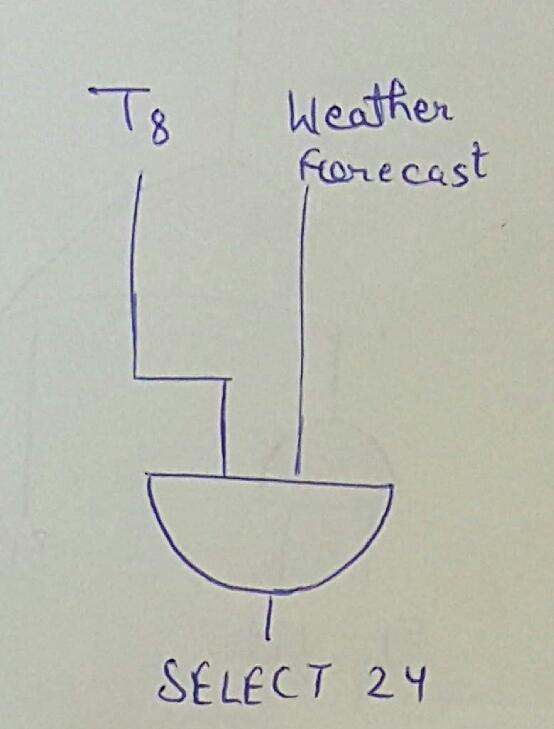 T8
Weather
Forecast
SELECT 24